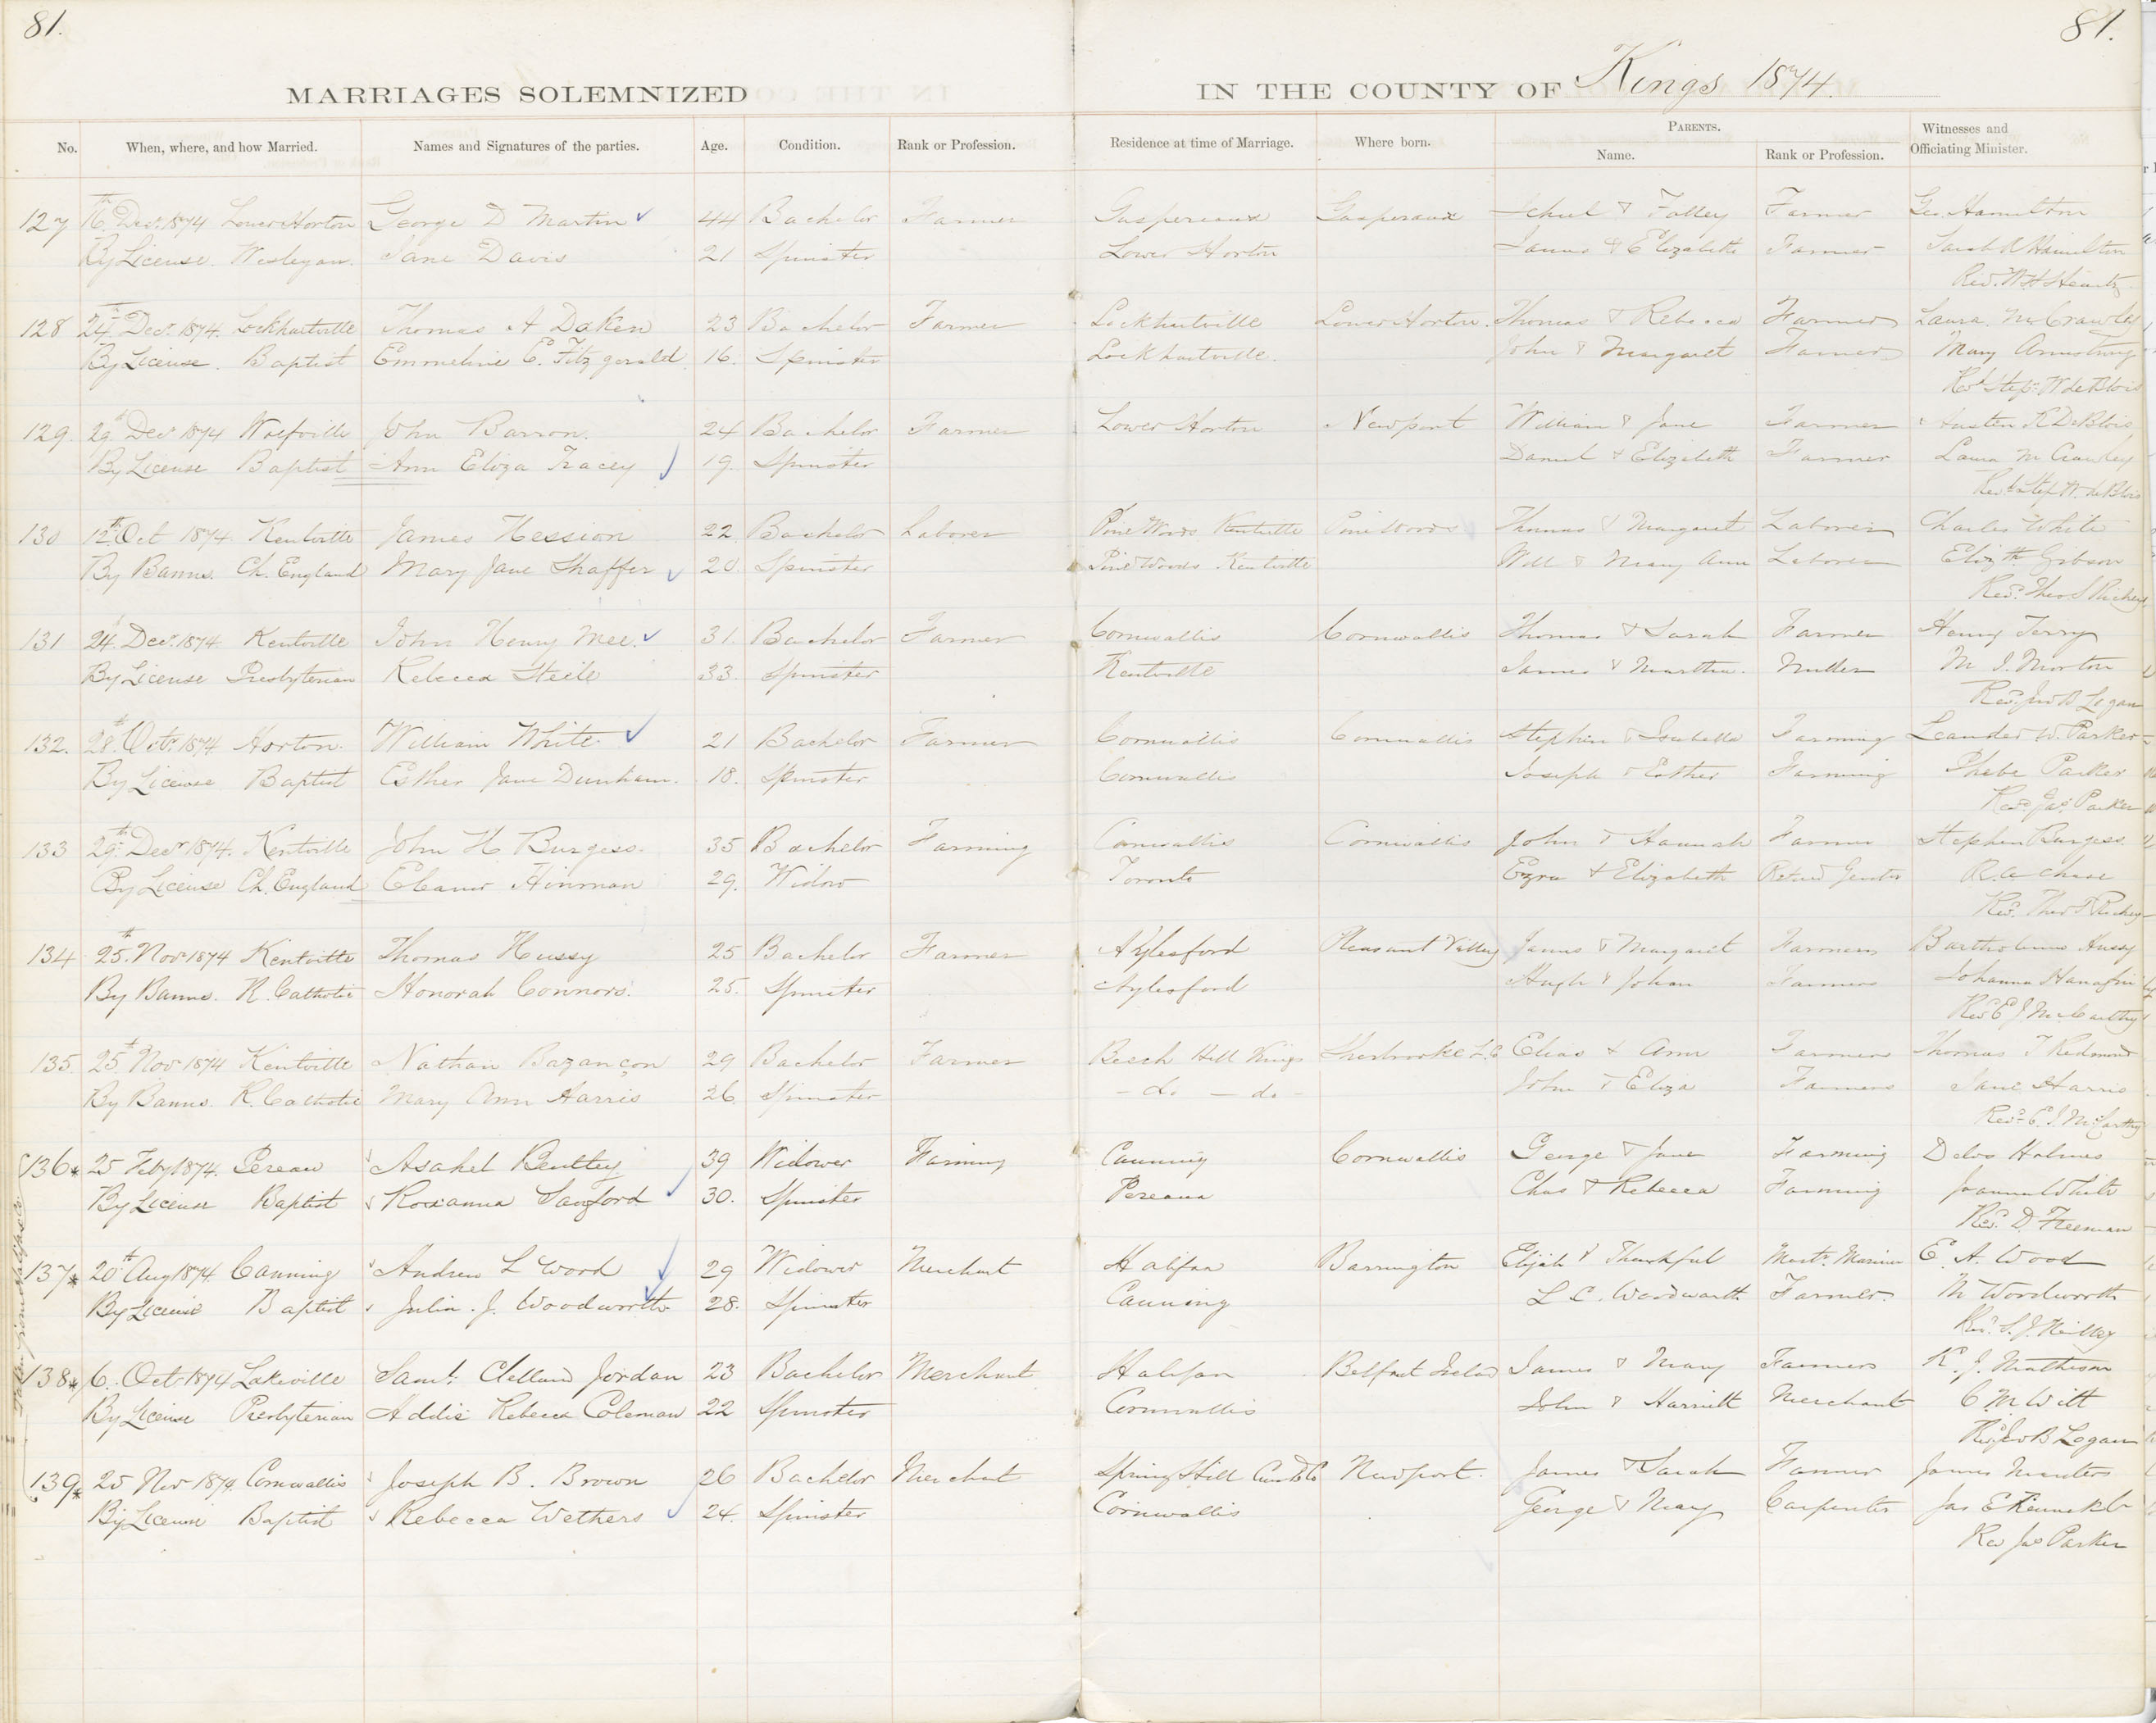 81. 81.
MARRIAGES SOLEMNIZED IN THE COUNTY OF Kings 1874.
No. When, where, and how Married. Names and Signatures of the parties. Age. Condition. Rank or Profession. Residence at time of Marriage. Where born. PARENTS. Name. Rank or Profession. Witnesses and Officiating Minister.
127 16th Decr. 1874 Lower Horton George D Martin 44 Bachelor Farmer Gaspereaux Gasperaux & Farmer Geo. Hamilton
By License. Wesleyan. Jane Davis 21 Spinster Lower Horton James & Elizabeth Farmer Sarah A Hamilton
Rev. W H Heartz
128 24th Decr. 1874. Lockhartville Thomas A Daken 23 Bachelor Farmer Lockhartville Lower Horton. Thomas & Rebecca Farmer Laura M Crawley
By License. Baptist Emmeline E. Fitzgerald 16. Spinster Lockhartville. John & Margaret Farmer Mary Armstrong
Revd Stepn W deBlois
129. 29th Decr 1874 Wolfville John Barron. 24 Bachelor Farmer Lower Horton Newport William & Jane Farmer Austen K DeBlois
By License Baptist Ann Eliza Tracey 19. Spinster Daniel & Elizabeth Farmer Laura M Crawley
Revd Step W. deBlois
130 12th Oct 1874 Kentville James Hession 22 Bachelor Laborer Pine Woods Kentville Pine Woods Thomas & Margaret Laborer Charles White
By Banns. Ch. England Mary Jane Shaffer 20. Spinster Pine Woods Kentville Will & Mary Ann Laborer Elizth Gibson
Revd. Theo S Richey
131 24. Decr. 1874. Kentville John Henry Mee. 31. Bachelor Farmer Cornwallis Cornwallis Thomas & Sarah Farmer Henry Terry
By License Presbyterian Rebecca Steele 33. Spinster Kentville James & Martha. Miller M J. Morton
Revd. Jno B Logan
132. 28th. Octr. 1874 Horton. William White 21 Bachelor Farmer Cornwallis Cornwallis Stephen & Isabella Farming Leander W. Parker
By License Baptist Esther Jane Dunham. 18. Spinster Cornwallis Joseph & Esther Farming Phebe Parker
Revd Jas Parker
133 29th. Decr 1874. Kentville John H Burgess. 35 Bachelor Farming Cornwallis Cornwallis John & Hannah Farmer Stephen Burgess.
By License Ch. England Eleanor Hinman 29. Widow Toronto Ezra & Elizabeth Retired Gentn R. A Chase
Revd. Theo S Richey
134 25th. Novr 1874 Kentville Thomas Hussy 25 Bachelor Farmer Aylesford Pleasant Valley James & Margaret Farmers Bartholomew Hussy
By Banns. R. Catholic Honorah Connors. 25. Spinster Aylesford Hugh & Johan Farmers Johanna Hanafin
Revd E J McCarthy
135. 25th Novr 1874 Kentville Nathan Bazançon 29 Bachelor Farmer Beech Hill Kings Sherbrooke L.C Elias & Ann Farmers Thomas T Redmond
By Banns. R. Catholic Mary Ann Harris 26. Spinster - do - do - John & Eliza Farmers Jane Harris
Revd E. J. McCarthy
136* 25 Feby 1874. Pereau Asahel Bentley 39 Widower Farming Canning Cornwallis George & Jane Farming Delos Holmes
By License Baptist Roxanna Sanford 30. Spinster Pereaux Chas & Rebecca Farming Joanna White
Revd. D Freeman
137* 20th Aug 1874. Canning Andrew L Wood 29 Widower Merchant Halifax Barrington Elijah & Thankful Mastr. Mariner E. A. Wood
By License Baptist Julia. J. Woodworth 28. Spinster Canning L C. Woodworth Farmer. M Woodworth
138* 6. Oct 1874 Lakeville Saml. Clelland Jordan 23 Bachelor Merchant Halifax Belfast Ireland James & Mary Farmers K. J. Matheson
By License Presbyterian Addie Rebecca Coleman 22 Spinster Cornwallis John & Harriett Merchant C. M Witt
Revd Jno B Logan
139* 25 Nov 1874. Cornwallis Joseph B. Brown 26 Bachelor Merchant Spring Hill Cumbd Co Newport. James & Sarah Farmer James Masters
By License Baptist Rebecca Wethers 24. Spinster Cornwallis George & Mary Carpenter Jas E
Rev Jas Parker